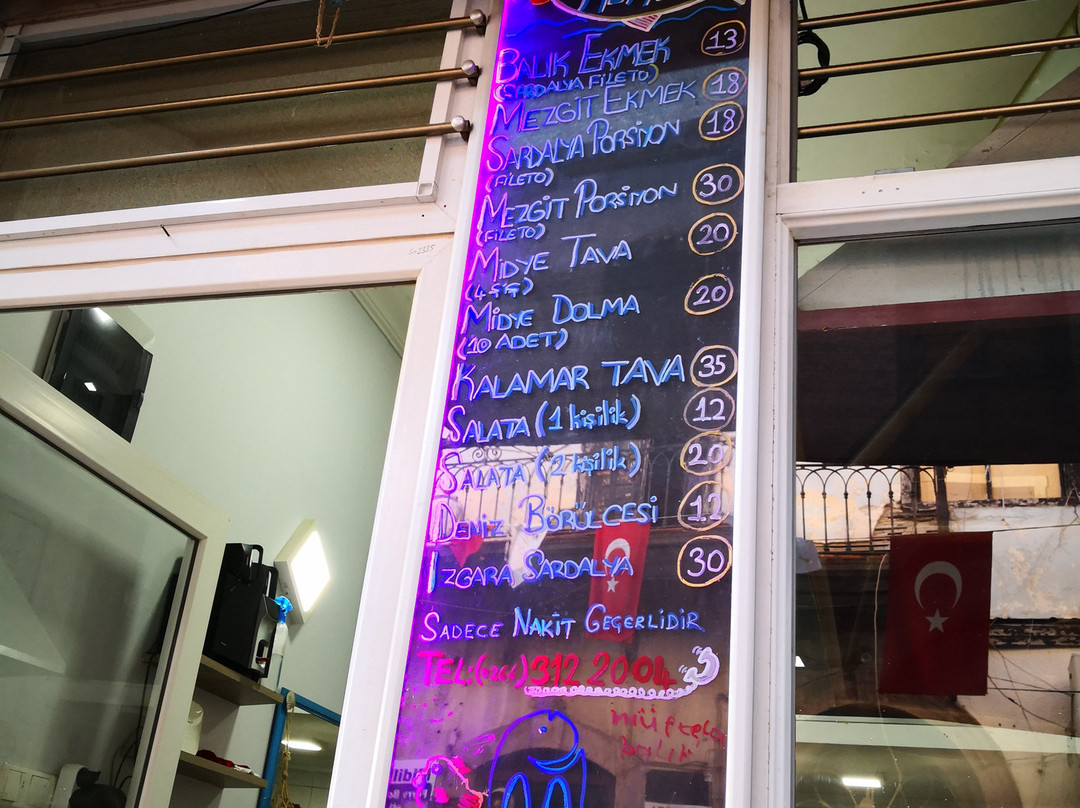 BALIK EKMEK 13
(SARDALYA FİLETO)
MEZGİT EKMEK 18
SARDALYA PORSİYON 18
(FİLETO)
MEZGİT PORSİYON 30
(FİLETO)
MİDYE TAVA 20
(4 ŞİŞ)
MİDYE DOLMA 20
(10 ADET)
KALAMAR TAVA 35
SALATA (1 kişilik) 12
SALATA (2 kişilik) 20
DENİZ BÖRÜLCESİ 12
IZGARA SARDALYA 30
SADECE NAKİT GEÇERLİDİR
TEL:(0266) 312 20 04
balık